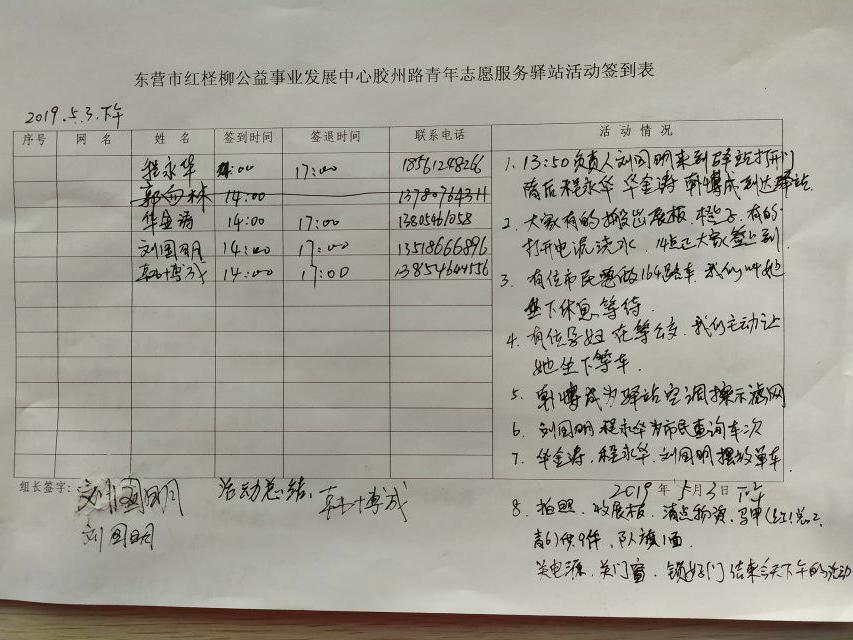 东营市红柽柳公益事业发展中心胶州路青年志愿服务驿站活动签到表
2019.5.3.下午
序号 网名 姓名 签到时间 签退时间 联系电话 活动情况
程永华 14:00 17:00 18561248266
郭向林 14:00 13780764311
华金涛 14:00 17:00 13805461058
刘国明 14:00 17:00 13518666896
韩博成 14:00 17:00 13854644556
1. 13:50负责人刘国明来到驿站打开门
随后程永华 华金涛 韩博成到达驿站.
2. 大家有的搬出展板、橙子、有的
打开电源浇水、14点正大家签上到
3. 有位市民要做164路车、我们叫她
坐下休息等待.
4. 有位孕妇在等公交、我们主动让
她坐下等车.
5. 韩博成为驿站空调擦示滤网
6. 刘国明 程永华为市民查询车次
7. 华金涛、程永华、刘国明摆放单车.
2019年5月3日 下午
8. 拍照、收展板、清点物资、马甲(红
青6)供9件、队旗1面
关电源、关门窗、锁好门 结束今天下午的活动
组长签字: 刘国明 活动总结: 韩博成
刘国明